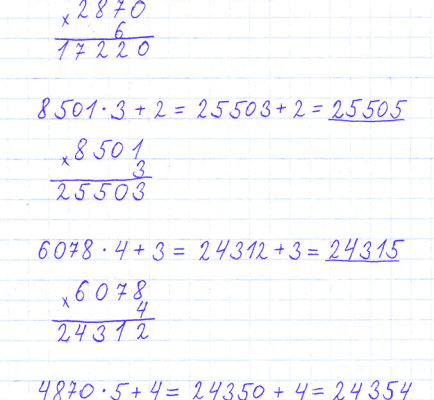 × 2870
6
17220
8501 · 3 + 2 = 25503 + 2 = 25505
× 8501
3
25503
6078 · 4 + 3 = 24312 + 3 = 24315
× 6078
4
24312
4870 · 5 + 4 = 24350 + 4 = 24354